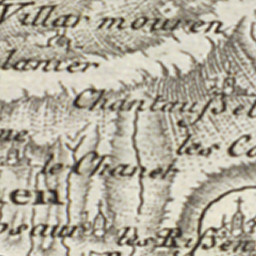 Villar mouren
lanier
Chantausse
les C
ne
le Chanet
en
saur
les Rissen